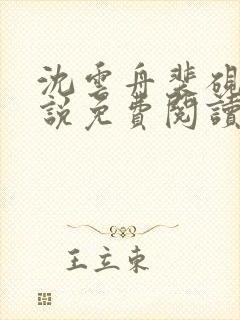 沈雲舟裴硯
說免費閱讀
王立東